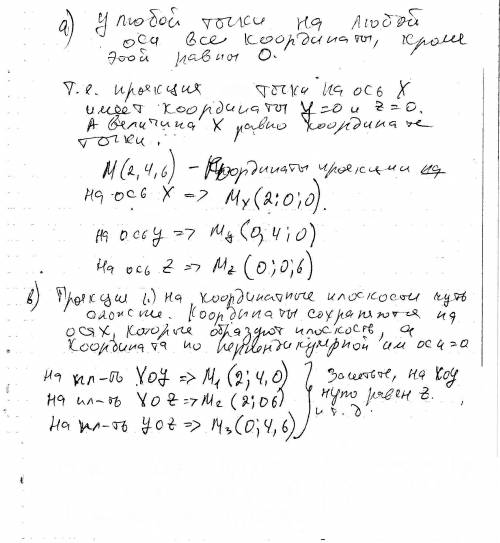 а) У любой точки на любой
оси все координаты, кроме
этой равны 0.
Т.е. проекция точки на ось X
имеет координаты y=0 и z=0.
А величина X равно координате
точки.
M(2,4,6) – координаты проекции на
на ось X => Mx(2;0;0).
на ось y => My(0,4;0)
на ось Z => Mz(0;0;6)
в) Проекция (.) на координатные плоскости чуть
сложнее. Координаты сохраняются на
осях, которые образуют плоскость, а
координата по перпендикулярной им оси=0
на пл-ть XOY => M1(2;4,0) } Заметьте, на xoy
на пл-ть XOZ => M2(2;06) нулю равен z.
на пл-ть YOZ => M3(0;4,6) и т.д.